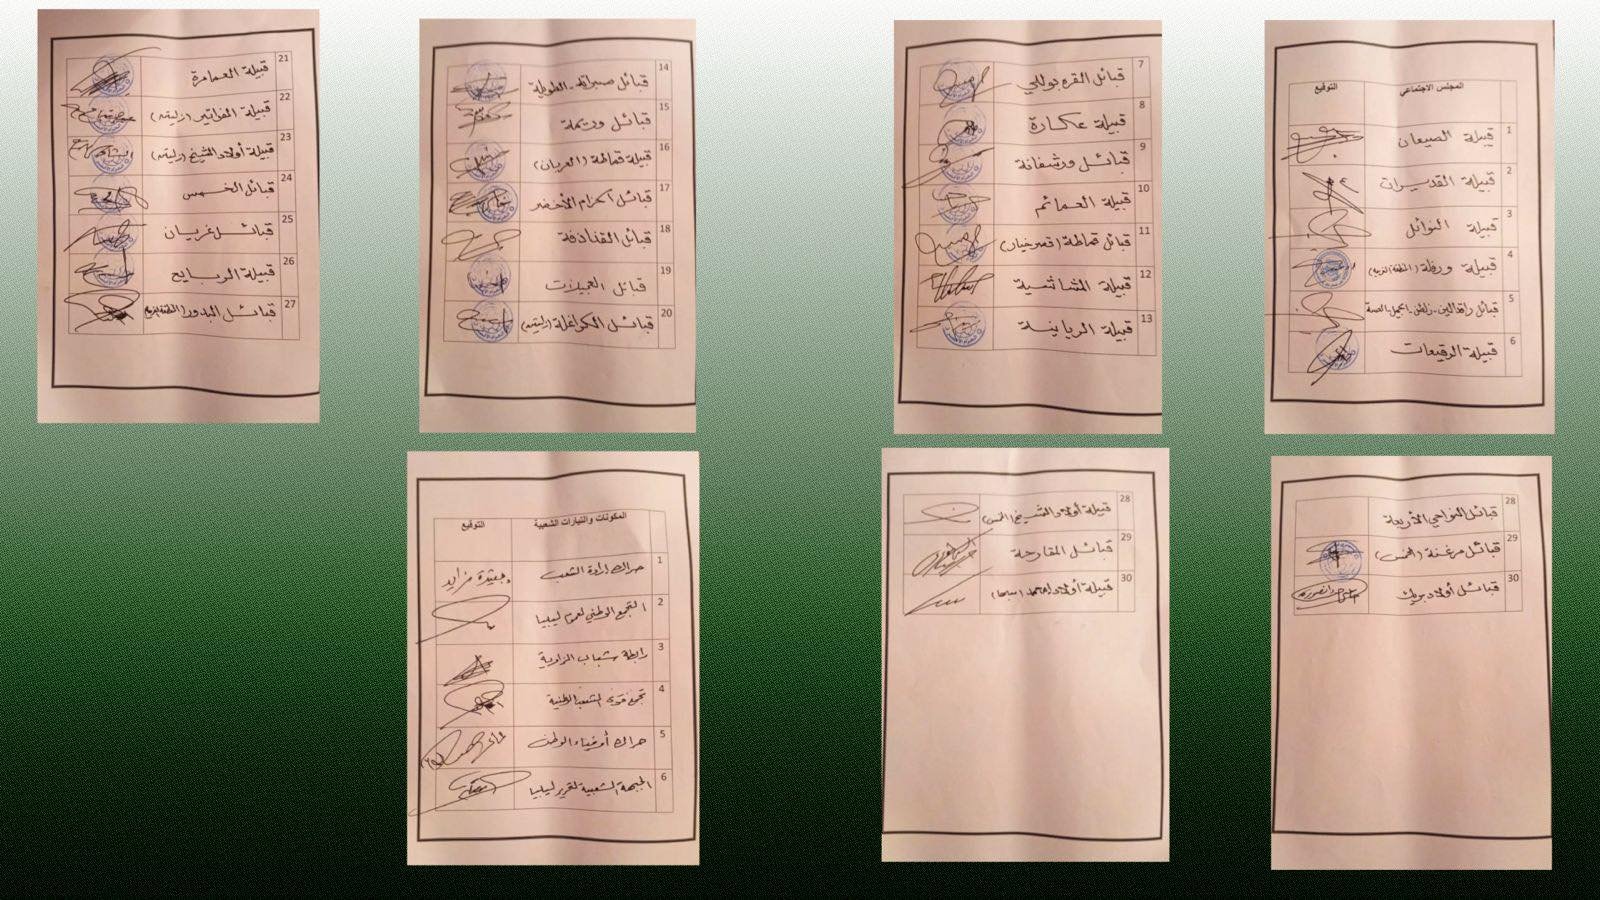 المجلس الاجتماعي التوقيع
1 قبيلة الصيعان
2 قبيلة القديرات
3 قبيلة النوائل
4 قبيلة ورفلة (المنطقة الغربية)
5 قبائل رقدالين - زلطن - الجميل - العسة
6 قبيلة الرقيعات
7 قبائل القره بوللي
8 قبيلة عكارة
9 قبائل ورشفانة
10 قبيلة العمائم
11 قبائل قماطة (قصر خيار)
12 قبيلة المشاشية
13 قبيلة الرياينة
14 قبائل صبراتة - الطويلة
15 قبائل وريمة
16 قبيلة قماطة (العربان)
17 قبائل الحرابة الأخضر
18 قبائل القذاذفة
19 قبائل العجيلات
20 قبائل الكراغلة (زليتن)
21 قبيلة العمامرة
22 قبيلة الفواتير (زليتن)
23 قبيلة أولاد الشيخ (زليتن)
24 قبائل الخمس
25 قبائل غريان
26 قبيلة الربايع
27 قبائل البدور (المنطقة الغربية)
28 قبائل النواحي الأربعة
29 قبائل مرغنة (الخمس)
30 قبائل أولاد بريك
28 قبيلة أولاد الشيخ (الخمس)
29 قبائل المقارحة
30 قبيلة أولاد امحمد (سبها)
المكونات والتيارات الشعبية التوقيع
1 حراك إرادة الشعب
2 التجمع الوطني لعموم ليبيا
3 رابطة شباب الزاوية
4 تجمع قوى الشعب الوطنية
5 حراك أوفياء الوطن
6 الجبهة الشعبية لتحرير ليبيا